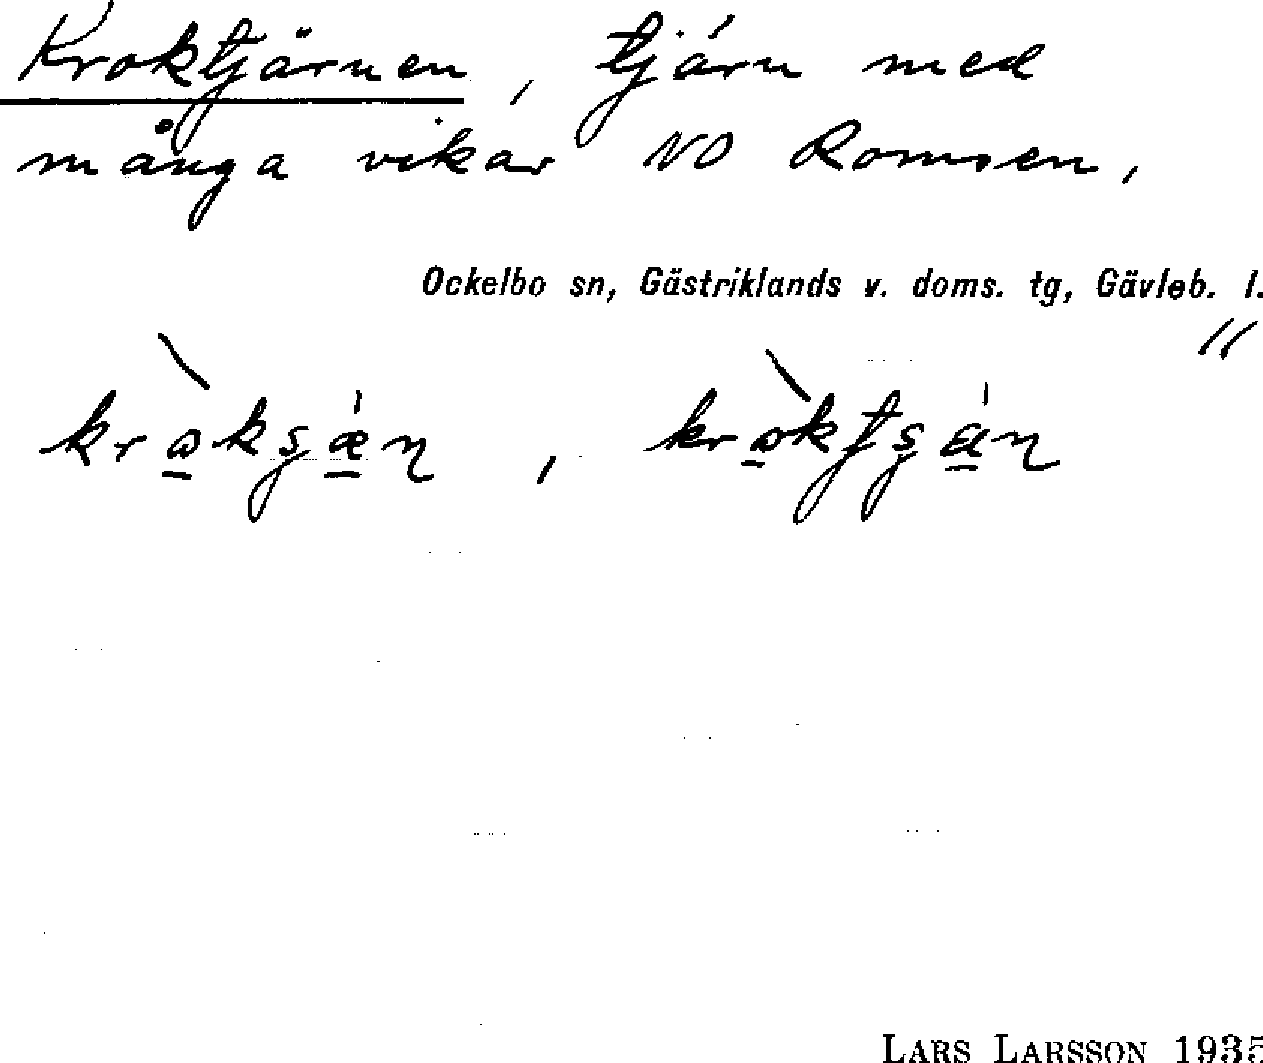 Kroktjärnen, tjärn med
många vikar NO Romsen,
Ockelbo sn, Gästriklands v. doms. tg, Gävleb. l.
"
LARS LARSSON 1935